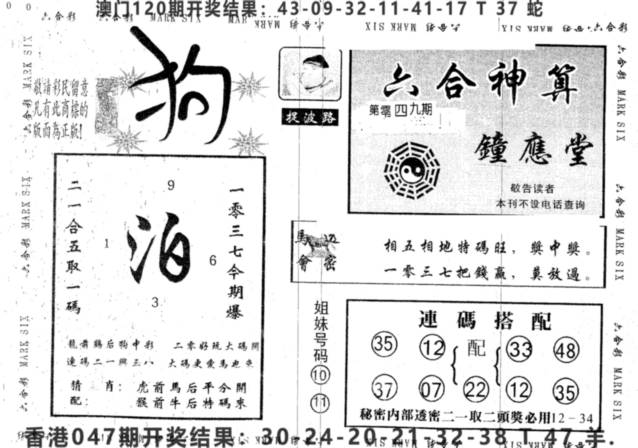 澳门120期开奖结果：43-09-32-11-41-17 T 37 蛇
六合彩 MARK SIX
敬请彩民留意
凡有此商标的
版面為正版!
狗
捉波路
六合神算
第零四九期
鐘應堂
敬告读者
本刊不设电话查询
二一合五取一碼
9
1
泊
6
3
一零三七今期爆
龍前鷄后狗中彩 二零好玩大碼開
連碼二一與三八 大碼更愛馬迎來
猜肖：虎前馬后平分開
配：猴前牛后特碼來
馬會
相五相地特碼旺，獎中獎。
一零三七把錢贏，莫放過。
姐妹号码
10
11
連碼搭配
35 12 配 33 48
37 07 22 12 35
秘密内部透密二一取二頭獎必用12－34
香港047期开奖结果：30-24-20-21-32-38 T 47 羊.